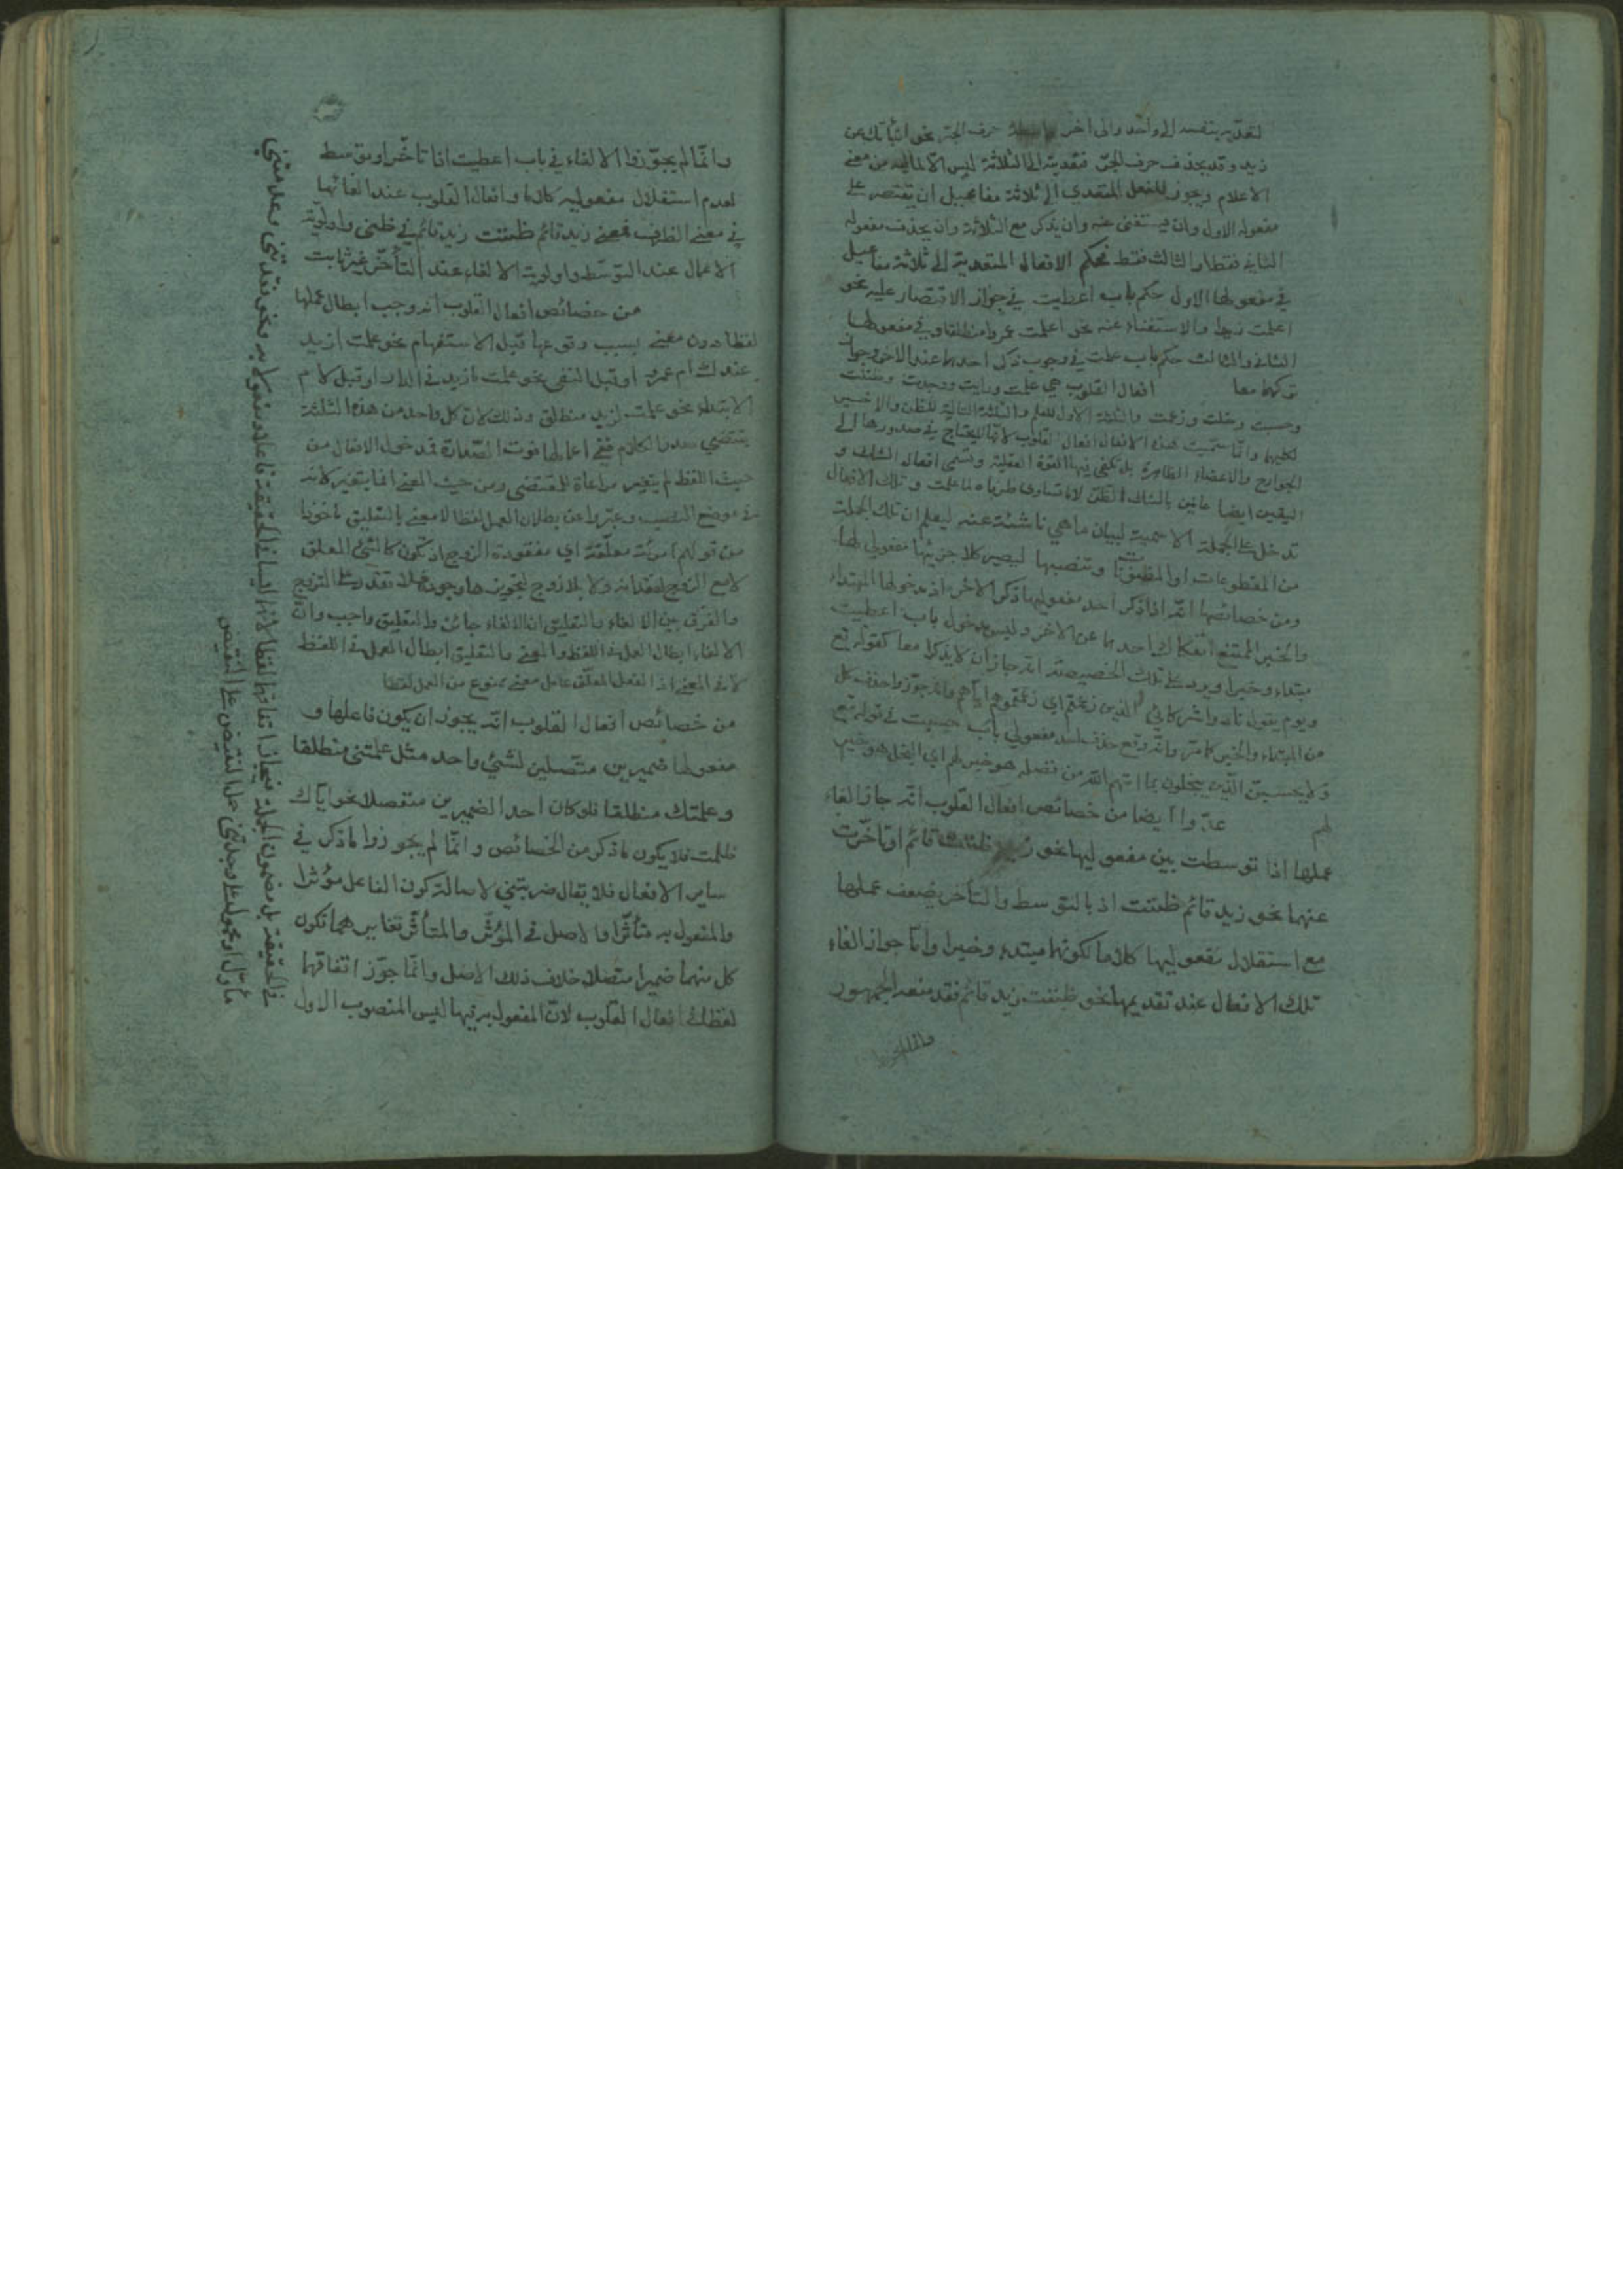 لتعديه بنفسه الى واحد والى اخر بواسطة حرف الجر نحو انبأتك عن
زيد وقد يحذف حرف الجر فتعديته الى الثلاثة ليس الا لما فيه من معنى
الاعلام ويجوز للفعل المتعدى الى ثلاثة مفاعيل ان يقتصر على
مفعوله الاول وان يستغنى عنه وان يذكر مع الثلاثة وان يحذف مفعوله
الثاني فقط او الثالث فقط فحكم الافعال المتعدية الى ثلاثة مفاعيل
في مفعولها الاول حكم باب اعطيت في جواز الاقتصار عليه نحو
اعلمت زيدا والاستغناء عنه نحو اعلمت عمروا منطلقا وفي مفعولها
الثاني والثالث حكم باب علمت في وجوب ذكر احدهما عند الاخر وجواز
تركهما معا افعال القلوب هي علمت ورايت ووجدت وظننت
وحسبت وخلت وزعمت والثلثة الاول للعلم والثلثة التالية للظن والاخير
لكليهما وانما سميت هذه الافعال افعال القلوب لانها لا يحتاج في صدورها الى
الجوارح والاعضاء الظاهرة بل تكفي فيها القوة العقلية وتسمى افعال الشك و
اليقين ايضا عانين بالشك الظن لا ما تساوى طرفاه لما علمت وتلك الافعال
تدخل على الجملة الاسمية لبيان ما هي ناشئة عنه ليعلم ان تلك الجملة
من المقطوعات او المظنونات وتنصبهما ليصير كلا جزئيها مفعولي لها
ومن خصائصها انه اذا ذكر احد مفعوليها ذكر الاخر اذ مدخولها المبتداء
والخبر الممتنع انفكاك احدهما عن الاخر وليس مدخول باب اعطيت
مبتداء وخبرا ويرد على تلك الخصيصة انه جاز ان لا يذكرا معا كقوله تع
ويوم يقول نادوا شركائي الذين زعمتم اي زعمتموهم اياهم وانه جوزوا حذف كل
من المبتداء والخبر كما مر وانه وقع حذف احد مفعولي باب حسبت في قوله تع
ولا يحسبن الذين يبخلون بما اتيهم الله من فضله هو خير لهم اي البخل هو خير
لهم عدوا ايضا من خصائص افعال القلوب انه جاز الغاء
عملها اذا توسطت بين مفعوليها نحو زيد ظننت قائم او تاخرت
عنهما نحو زيد قائم ظننت اذ بالتوسط والتأخر يضعف عملها
مع استقلال مفعوليها كلاما لكونهما مبتدء وخبرا واما جواز الغاء
تلك الافعال عند تقديمها نحو ظننت زيد قائم فقد منعه الجمهور
وانما لم يجوزوا
وانما لم يجوزوا الالغاء في باب اعطيت اذا تاخر او توسط
لعدم استقلال مفعوليه كلاما وافعال القلوب عند الغائها
في معنى الظرف فمعنى زيد قائم ظننت زيد قائم في ظني واولوية
الاعمال عند التوسط واولوية الالغاء عند التأخر غير ثابت
من خصائص افعال القلوب انه وجب ابطال عملها
لفظا دون معنى بسبب وقوعها قبل الاستفهام نحو علمت ازيد
عندك ام عمرو او قبل النفي نحو علمت ما زيد في الدار او قبل لام
الابتداء نحو علمت لزيد منطلق وذلك لان كل واحد من هذه الثلثة
يقتضي صدر الكلام ففي اعمالها فوت الصدارة فدخول الافعال من
حيث اللفظ لم يتغير مراعاة للمقتضي ومن حيث المعنى انما يتغير لانه
في موضع النصب وعبروا عن بطلان العمل لفظا لا معنى بالتعليق ماخوذا
من قولهم امرأة معلقة اي مفقودة الزوج اذ تكون كالشئ المعلق
لا مع الزوج لفقدانه ولا بلا زوج لتجويزها وجوده فلا تقدر على التزوج
والفرق بين الالغاء والتعليق ان الالغاء جائز والتعليق واجب وان
الالغاء ابطال العمل في اللفظ والمعنى والتعليق ابطال العمل في اللفظ
لا في المعنى اذ الفعل المعلق عامل معنى ممنوع من العمل لفظا
من خصائص افعال القلوب انه يجوز ان يكون فاعلها و
مفعولها ضميرين متصلين لشئ واحد مثل علمتني منطلقا
وعلمتك منطلقا فلو كان احد الضميرين منفصلا نحو اياك
ظلمت فلا يكون ما ذكر من الخصائص وانما لم يجوزوا ما ذكر في
ساير الافعال فلا يقال ضربتني لاصالة كون الفاعل مؤثرا
والمفعول به متأثرا والاصل في المؤثر والمتأثر تغايرهما فكون
كل منهما ضميرا متصلا خلاف ذلك الاصل وانما جوز اتفاقهما
لفظا في افعال القلوب لان المفعول به فيها ليس المنصوب الاول
في الحقيقة بل مضمون الجملة فجاز اتفاقهما لفظا لانهما ليسا في الحقيقة فاعلا ومفعولا به ونحو فقدتني وعدمتني
مأول او محمول على وجدتني حمل النقيض على النقيض